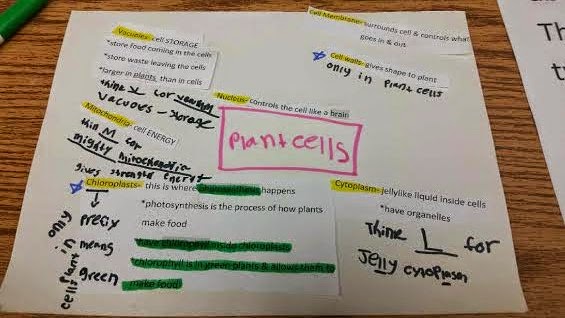 Vacuoles- cell STORAGE
*store food coming in the cells
*store waste leaving the cells
*larger in plants, than in cells
think V for
vacuoles - storage
Mitochondria- cell ENERGY
thin M for
mighty mitochondria
gives strength energy
Cell Membrane- surrounds cell & controls what
goes in & out
Cell walls- gives shape to plant
only in plant cells
Nucleus- controls the cell like a brain
plant cells
Chloroplasts- this is where happens
*photosynthesis is the process of how plants
make food
*chlorophyll is in green plants & allows them to
make food
prefix
means
green
only in plant cells
Cytoplasm- jellylike liquid inside cells
*have organelles
Think L for
Jelly cytoplasm
Th
t